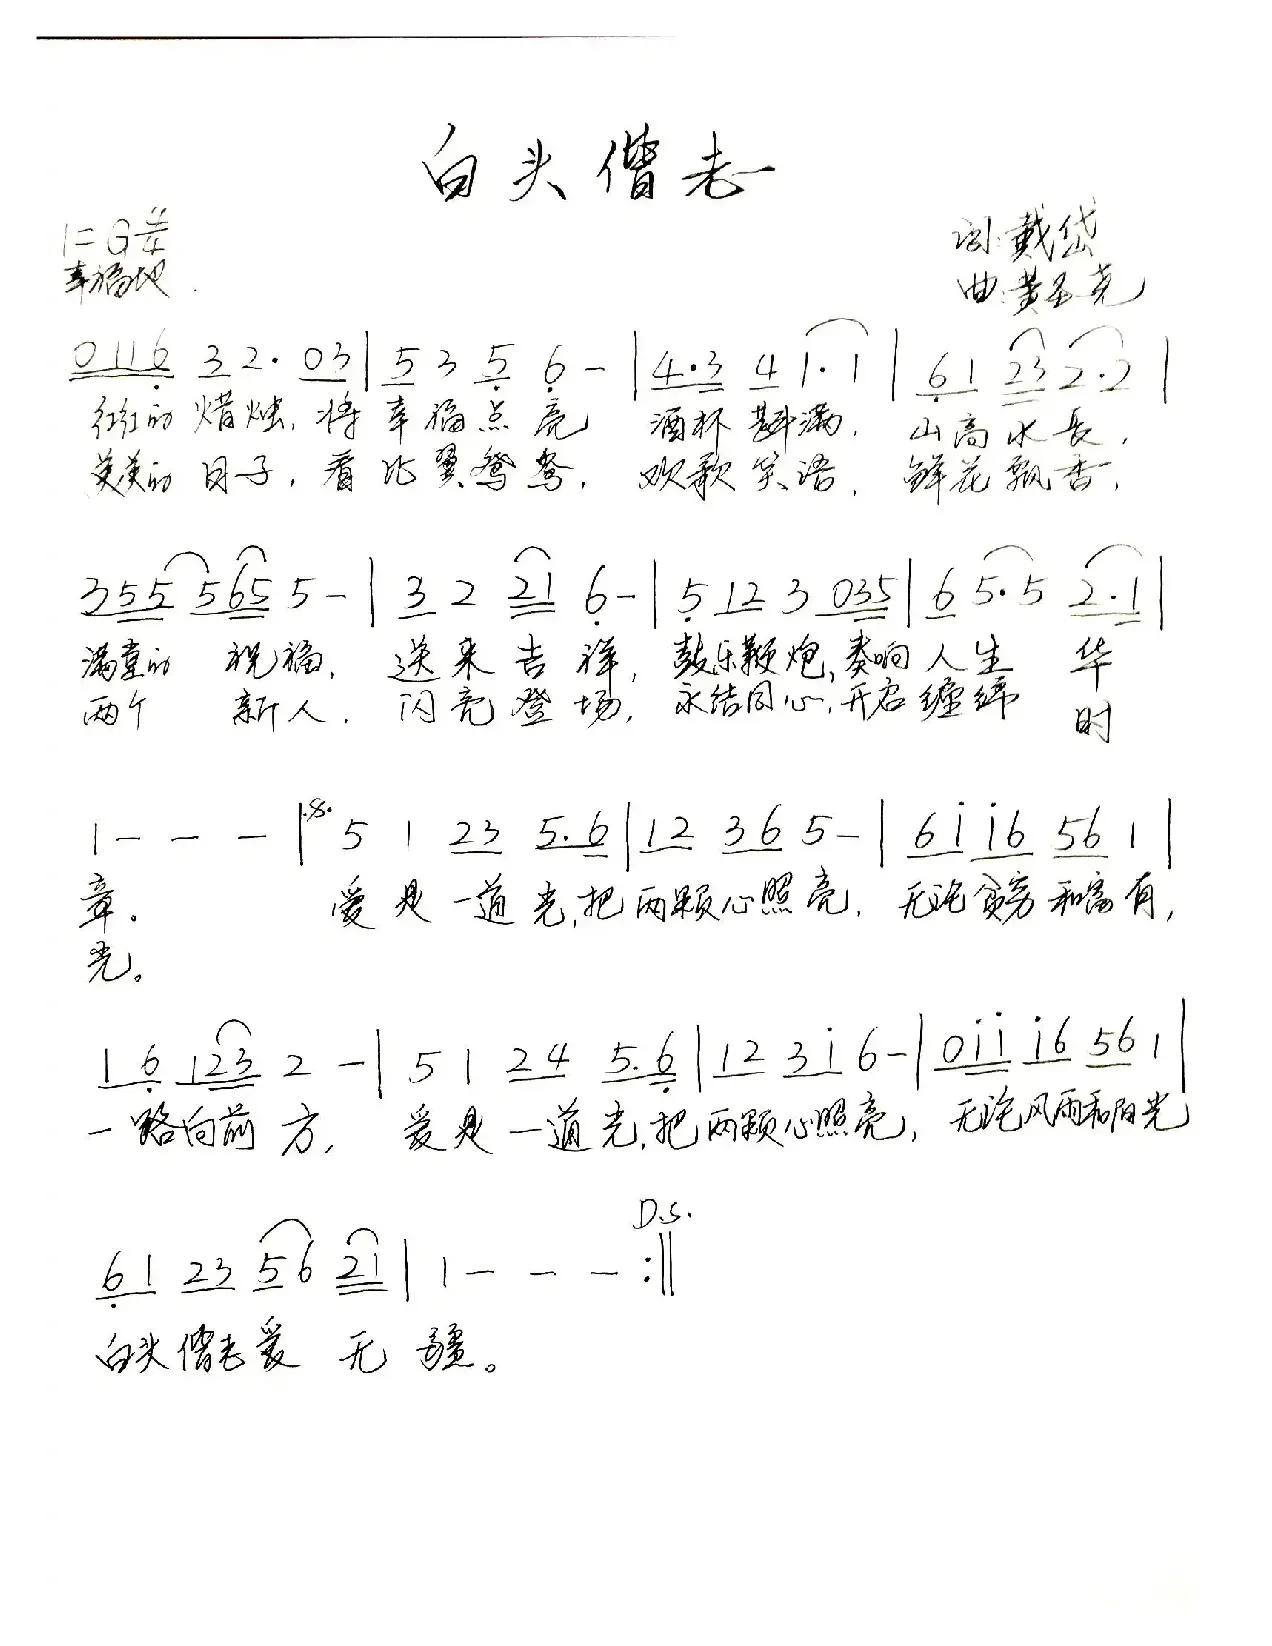 白头偕老
1=G 4/4
幸福地
词:戴岱
曲:黄圣尧
0116 3 2· 03 | 5 3 5 6 - | 4·3 4 1·1 | 61 23 2·2 |
红红的 烛, 将幸福点亮 酒杯斟满, 山高水长,
美美的日子, 看比翼鸳鸯, 欢歌笑语, 鲜花飘香,
355 565 5 - | 3 2 21 6 - | 5 12 3 035 | 6 5·5 2·1 |
满堂的 祝福, 送来吉祥, 鼓乐鞭炮, 奏响人生 华
两个 新人, 闪亮登场, 永结同心, 开启缠绵 时
1 - - - | 5 1 23 5·6 | 12 36 5 - | 6i i6 56 1 |
章. 爱是一道光, 把两颗心照亮, 无论贫穷和富有,
光。
1 6 123 2 - | 5 1 24 5·6 | 12 3i 6 - | 0ii i6 56 1 |
一路向前方, 爱是一道光, 把两颗心照亮, 无论风雨和阳光
D.S.
61 23 56 21 | 1 - - - :||
白头偕老爱 无 疆。